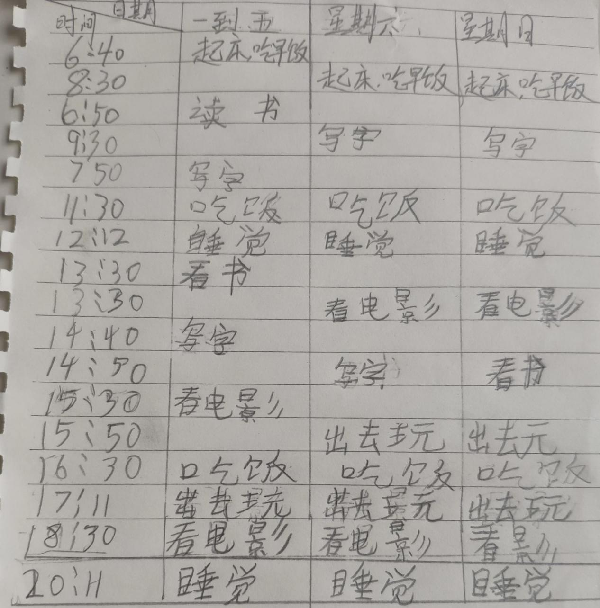 时间 日期 一到五 星期六 星期日
6:40 起床,吃早饭
8:30 起床,吃早饭 起床,吃早饭
6:50 读书
9:30 写字 写字
7 50 写字
11:30 吃饭 吃饭 吃饭
12:12 睡觉 睡觉 睡觉
13:30 看书
13:30 看电影 看电影
14:40 写字
14:50 写字 看书
15:30 看电影
15:50 出去玩 出去元
16:30 吃饭 吃饭 吃饭
17:11 出去玩 出去玩 出去玩
18:30 看电影 看电影 看影
20:11 睡觉 睡觉 睡觉